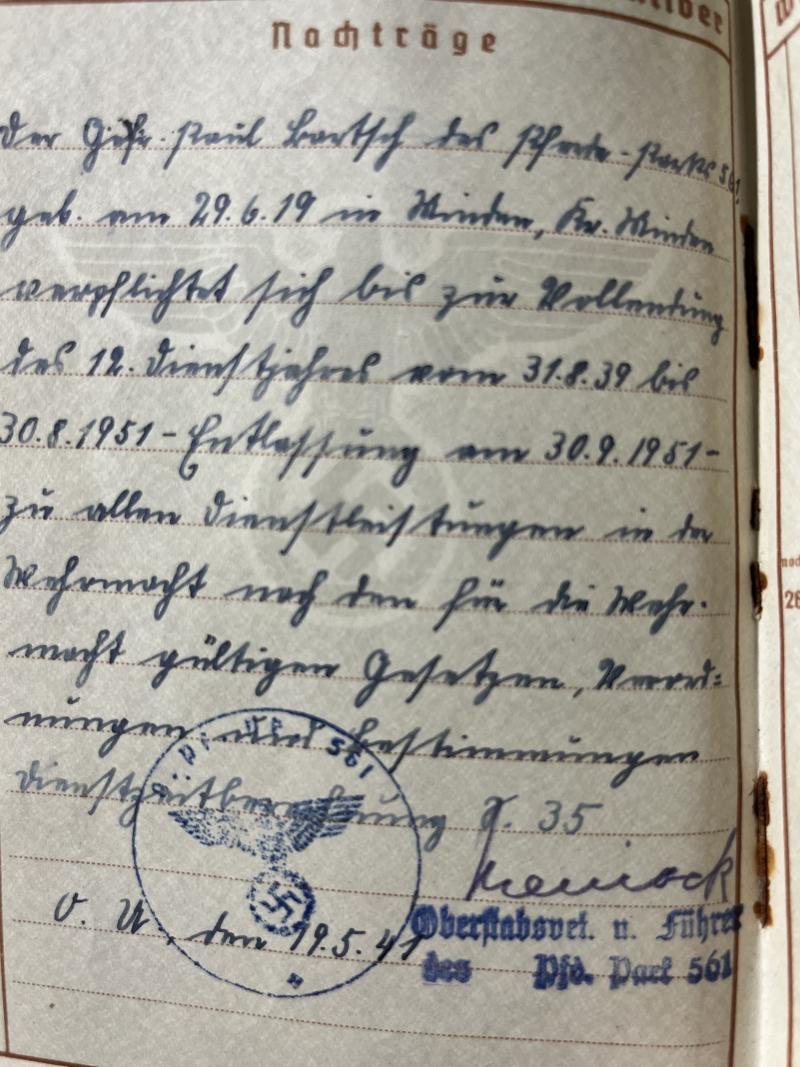 Nachträge
Der Gefr. Paul Bartsch des Pferde-Parks 561,
geb. am 29.6.19 in Minden, Kr. Minden
verpflichtet sich bis zur Vollendung
des 12. Dienstjahres vom 31.8.39 bis
30.8.1951 - Entlassung am 30.9.1951 -
zu allen Dienstleistungen in der
Wehrmacht nach den für die Wehr-
macht gültigen Gesetzen, Verord=
nungen und Bestimmungen
Dienstzeitberechnung S. 35
O. U., den 19.5.41
Oberstabsvet. u. Führer
des Pfd. Park 561
561